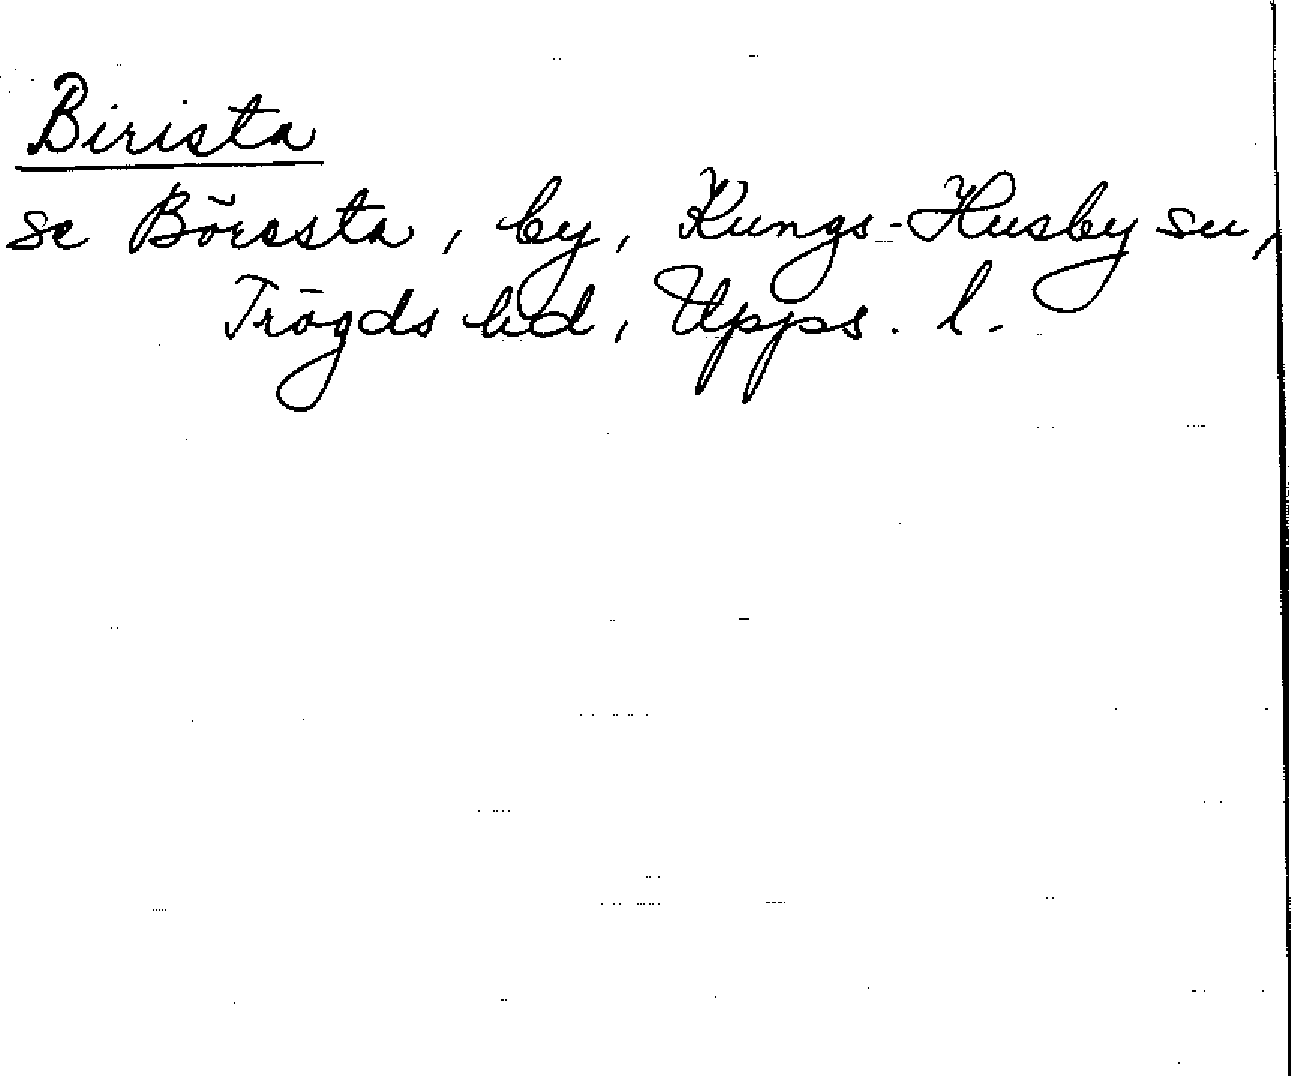 Birista
se Börssta, by, Kungs-Husby sn,
Trögds hd, Upps. l.